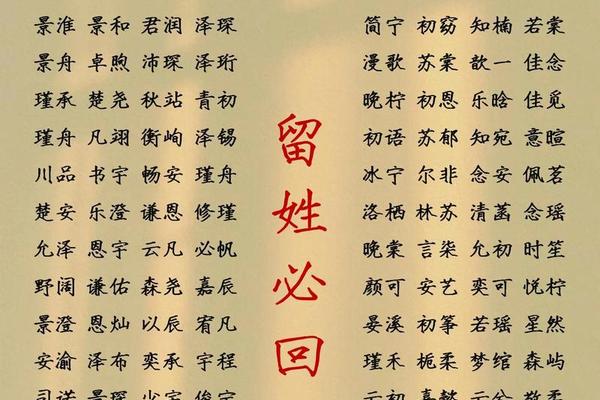 景淮 景和 君润 泽琛
景舟 卓煦 沛琛 泽珩
瑾承 楚尧 秋站 青初
瑾舟 凡翊 衡峋 泽锡
川品 书宇 畅安 瑾舟
楚安 乐澄 谦恩 修瑾
允泽 恩宇 云凡 必帆
野阔 谦佑 森尧 嘉辰
景澄 恩灿 以辰 宥凡
安渝 泽布 奕承 宇程
司诺 景琛 少宇 俊宁
留姓必回
简宁 初窈 知楠 若棠
漫歌 苏棠 歆一 佳念
晚柠 初恩 乐晗 佳觅
初语 苏郁 知宛 意暄
冰宁 尔非 念安 佩茗
洛栖 林苏 清菡 念瑶
晚棠 言柒 允初 时笙
颜可 安艺 奕可 悦柠
晏溪 初筝 若瑶 星然
瑾禾 栀柔 梦绾 森屿
云初 嘉懿 云兮